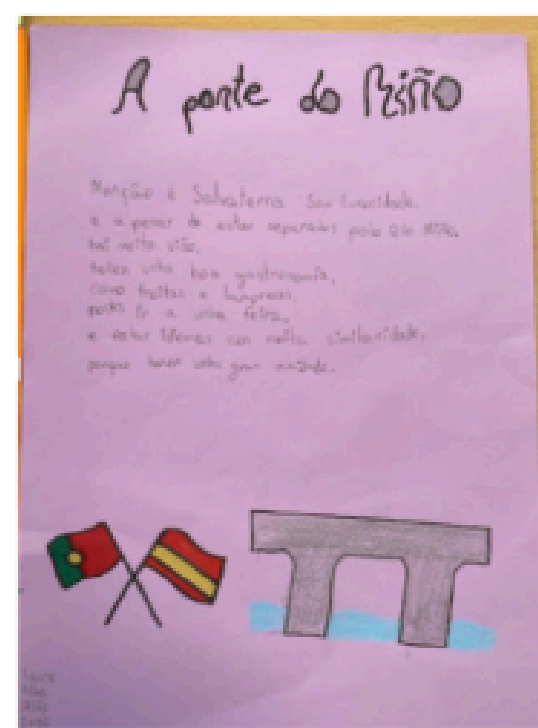 A ponte do Miño
Monção e Salvaterra Son Eurocidade
e a pesar de estar separados polo Río Miño,
hai moito viño,
teñen unha boa gastronomía,
como troitas e lampreas,
podes ir a unha feira,
e estar idiomas con moita similaridade,
porque teñen unha gran amizade.